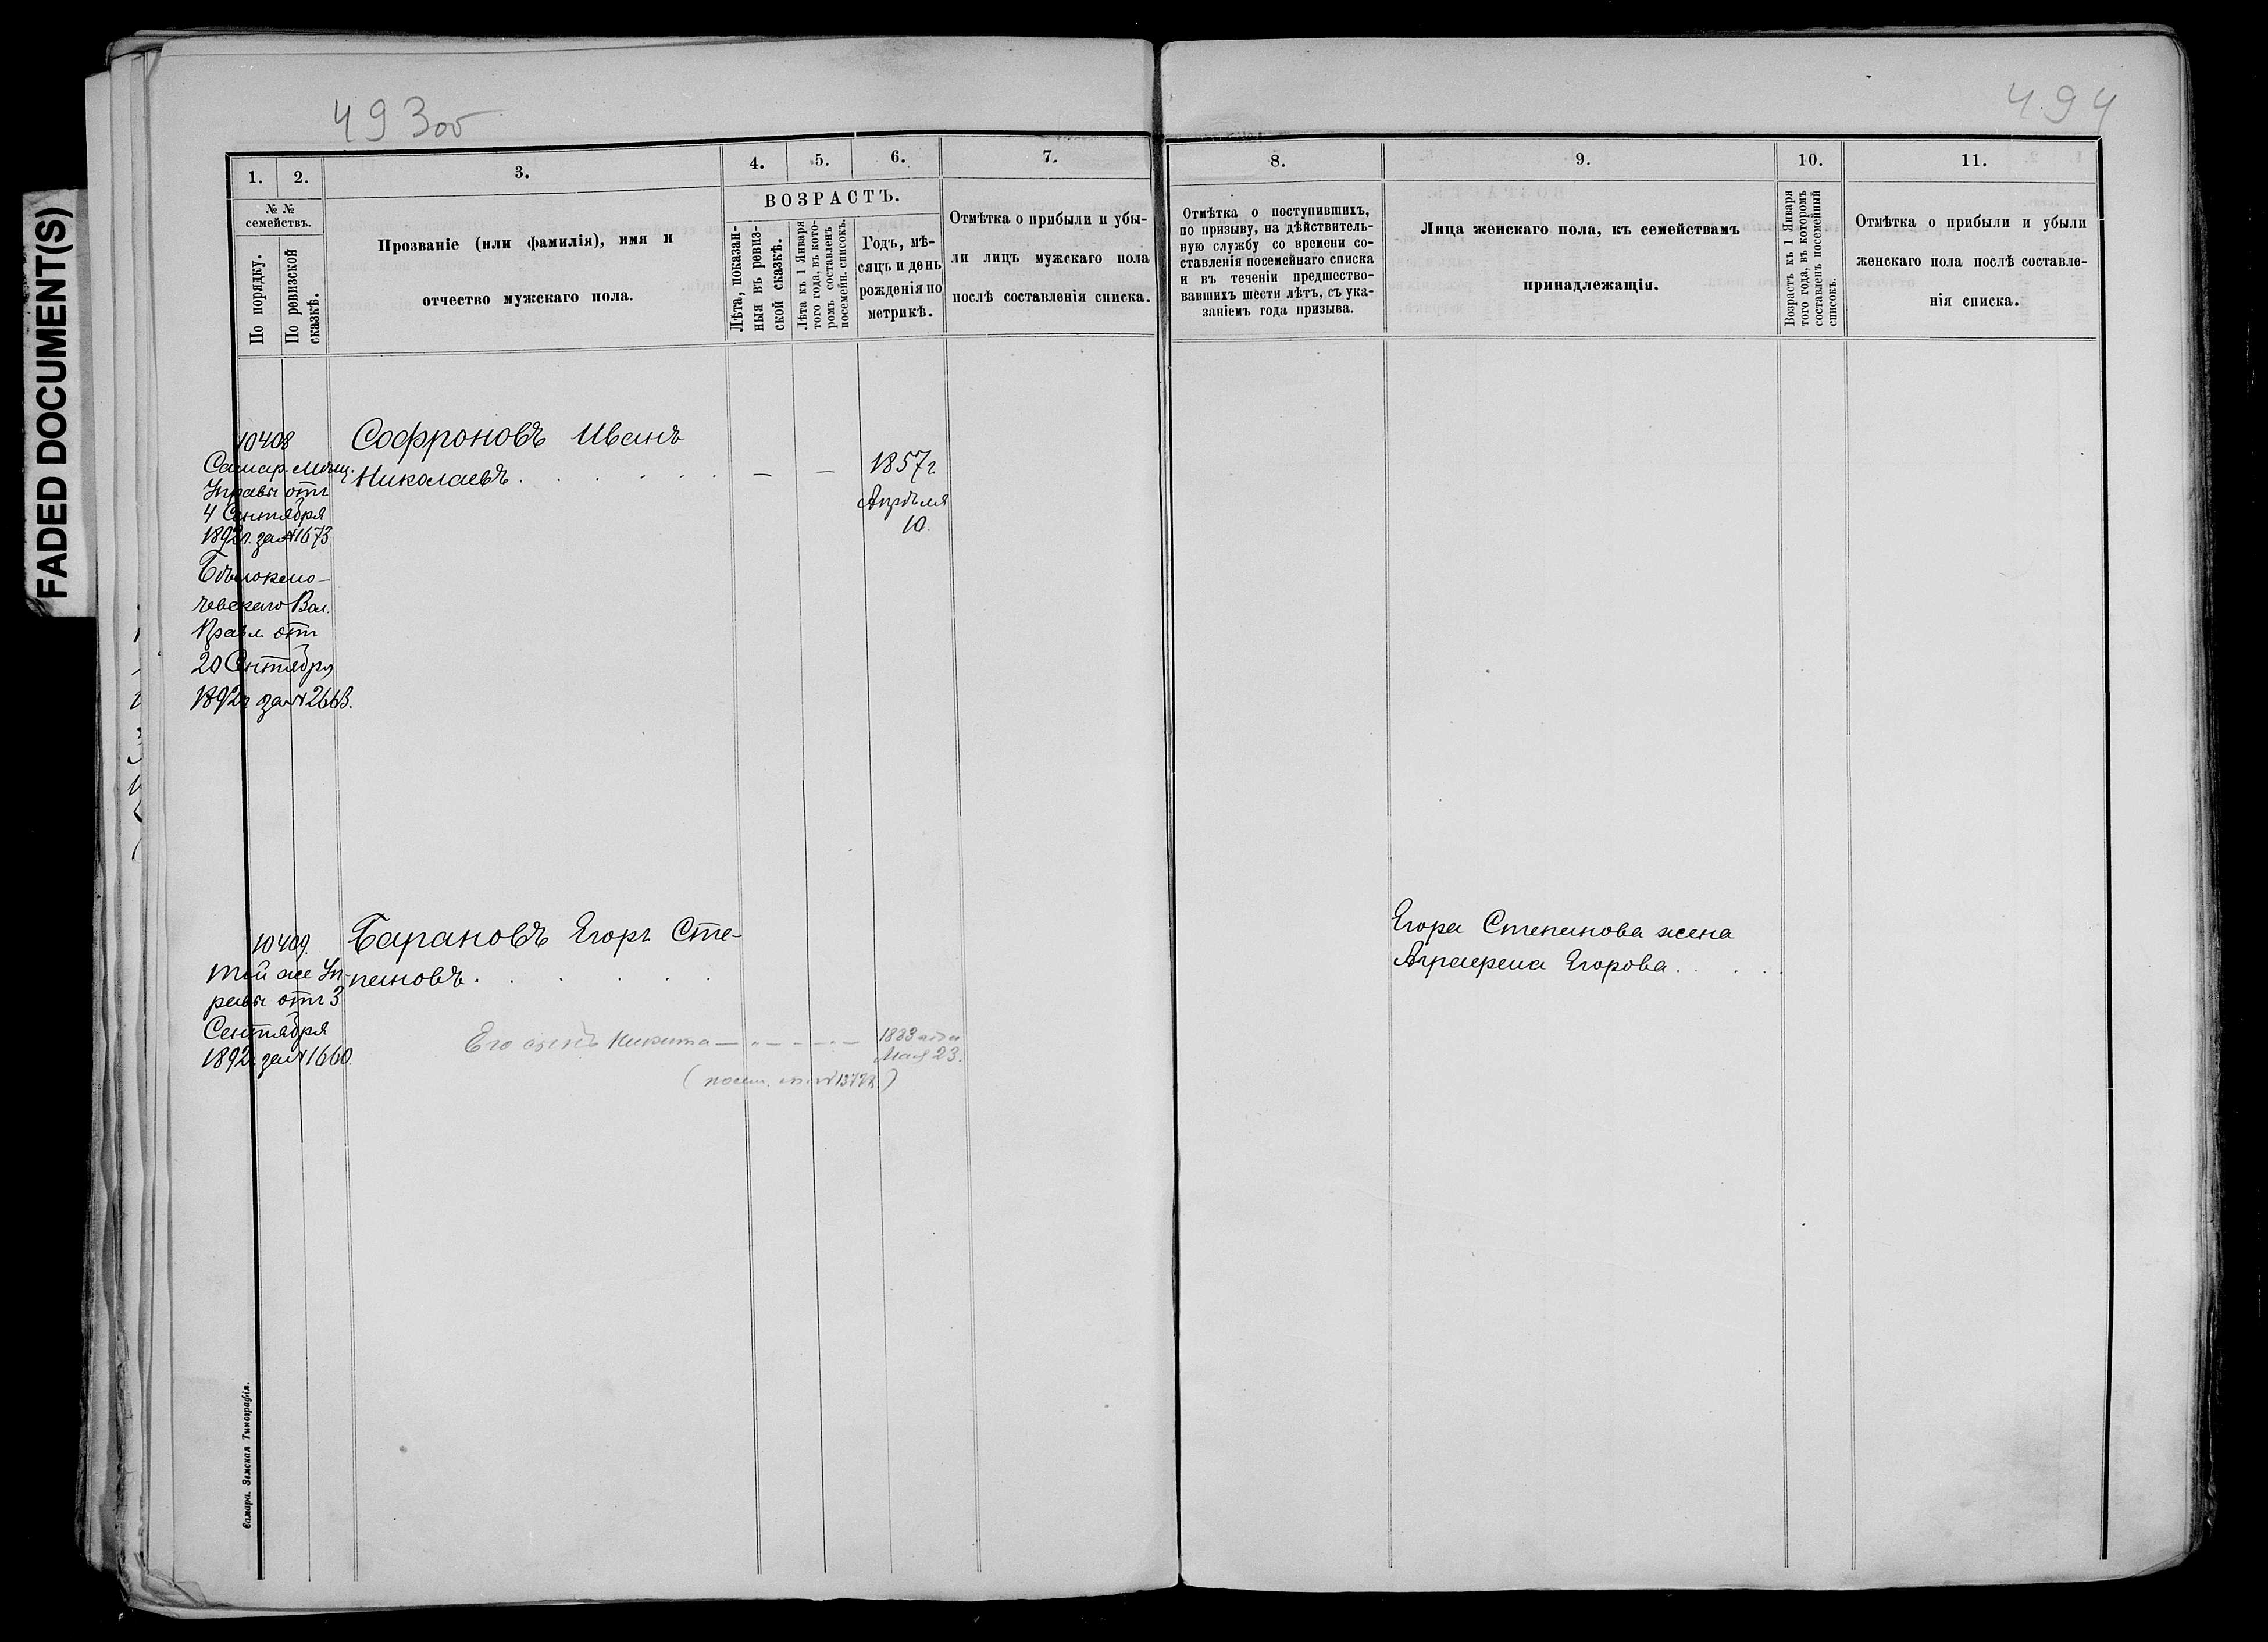 FADED DOCUMENT(S)
493об
494
1.
2.
3.
4.
5.
6.
7.
8.
9.
10.
11.
№ №
семействъ.
По порядку.
По ревизской
сказкѣ.
Прозваніе (или фамилія), имя и
отчество мужскаго пола.
ВОЗРАСТЪ.
Лѣта, показан-
ныя въ ревиз-
ской сказкѣ.
Лѣта къ 1 Января
того года, въ кото-
ромъ составленъ
посемейн. списокъ.
Годъ, мѣ-
сяцъ и день
рожденія по
метрикѣ.
Отмѣтка о прибыли и убы-
ли лицъ мужскаго пола
послѣ составленія списка.
Отмѣтка о поступившихъ,
по призыву, на дѣйствитель-
ную службу со времени со-
ставленія посемейнаго списка
и въ теченіи предшество-
вавшихъ шести лѣтъ, съ ука-
заніемъ года призыва.
Лица женскаго пола, къ семействамъ
принадлежащія.
Возрастъ къ 1 Января
того года, въ которомъ
составленъ посемейный
списокъ.
Отмѣтка о прибыли и убыли
женскаго пола послѣ составле-
нія списка.
10408
Самар. Мѣщ.
Управы отъ
4 Сентября
1892г. за № 1673
Бѣлоключ-
евскаго Вол.
Правл. отъ
20 Сентября
1892г за № 2663.
Софроновъ Иванъ
Николаевъ . . . . . . — —
1857г
Апрѣля
10.
10409.
той же Уп-
равы отъ 3
Сентября
1892г. за № 1660.
Барановъ Егоръ Сте-
пановъ . . . . .
Его сынъ Никита — 1883 года
Мая 23.
Егора Степанова жена
Аграфена Егорова . . . .
Самара. Земская Типографія.